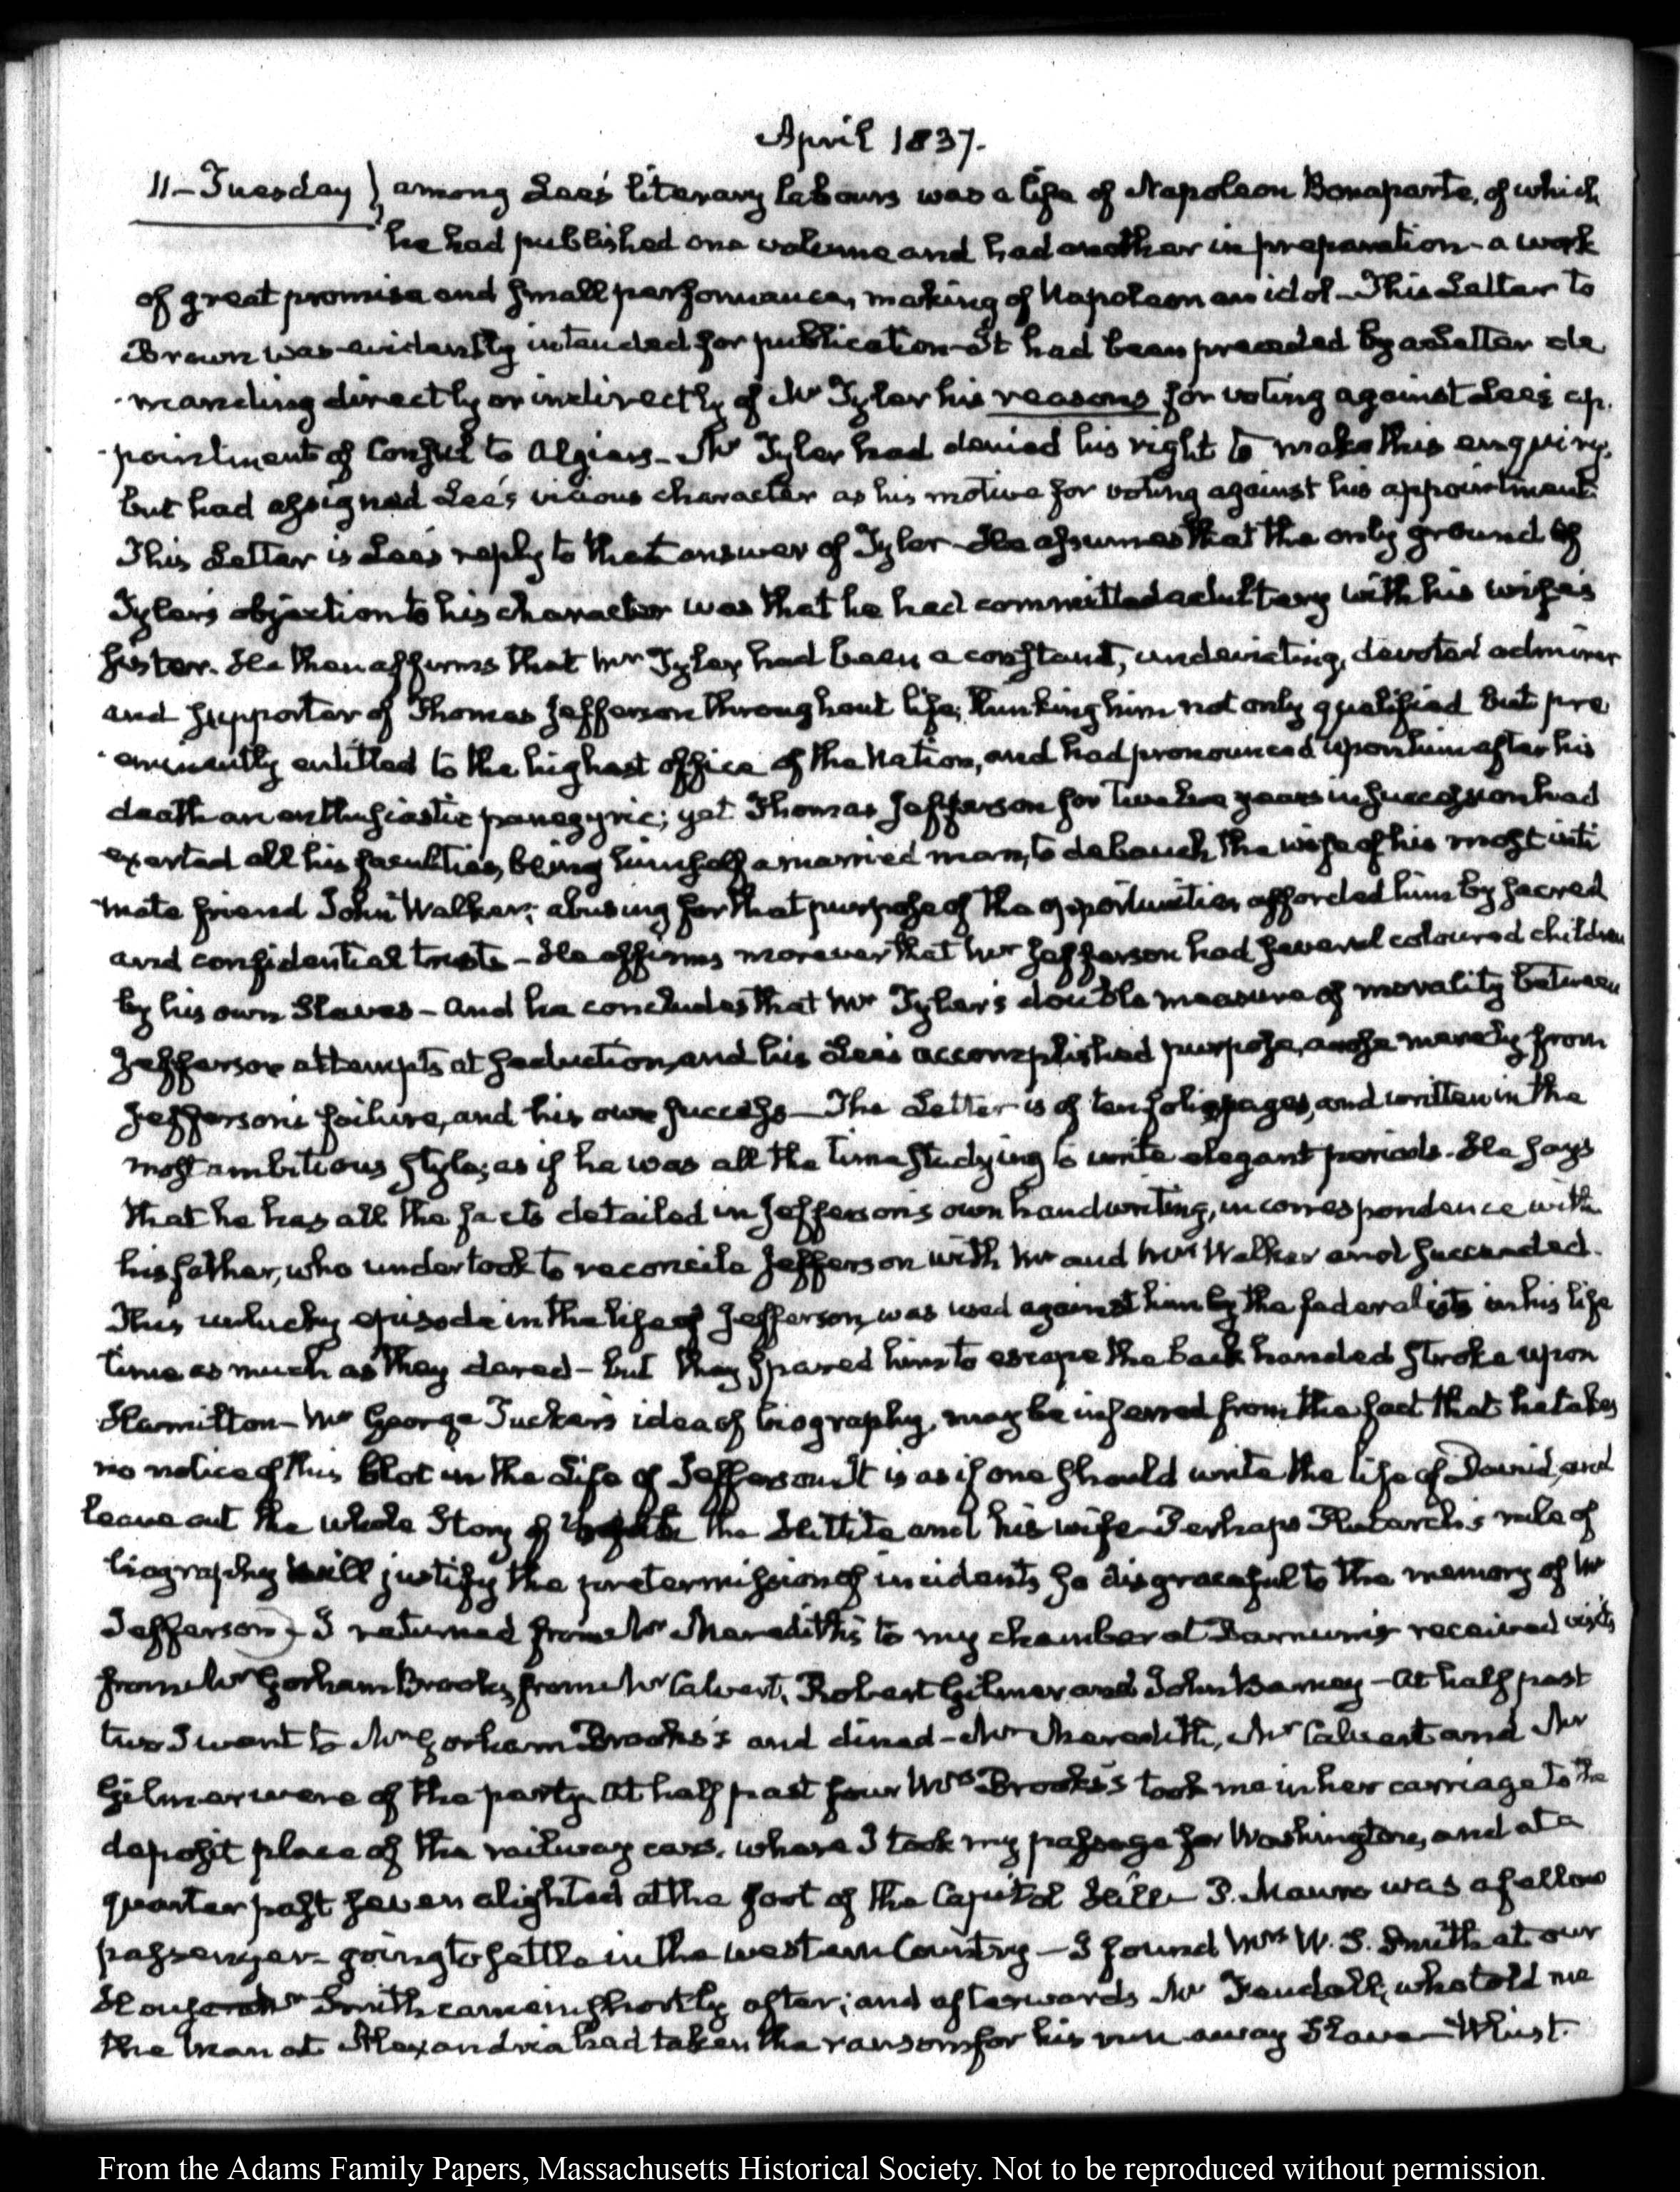 April 1837.
11 - Tuesday } among Lee's literary labours was a life of Napoleon Bonaparte, of which
he had published one volume and had another in preparation - a work
of great promise and small performance, making of Napoleon an idol - This Letter to
Brown was evidently intended for publication - It had been preceded by a Letter de
manding directly or indirectly of Mr Tyler his reasons for voting against Lee's ap
pointment of Consul to Algiers - Mr Tyler had denied his right to make this enquiry,
but had assigned Lee's vicious character as his motive for voting against his appointment.
This Letter is Lee's reply to that answer of Tyler - He assumes that the only ground of
Tyler's objection to his character was that he had committed adultery with his wife's
sister. He then affirms that Mr Tyler had been a constant, undeviating, devoted admirer
and supporter of Thomas Jefferson throughout life; thinking him not only qualified but pre
eminently entitled to the highest office of the Nation, and had pronounced upon him after his
death an enthusiastic panegyric; yet Thomas Jefferson for twelve years in succession had
exerted all his faculties, being himself a married man, to debauch the wife of his most inti
mate friend John Walker; abusing for that purpose of the opportunities afforded him by sacred
and confidential trusts - He affirms moreover that Mr Jefferson had several coloured children
by his own Slaves - and he concludes that Mr Tyler's double measure of morality between
Jefferson attempts at seduction, and his Lee's accomplished purpose, arose merely from
Jefferson's failure, and his own success - The Letter is of ten folio pages, and written in the
most ambitious style; as if he was all the time studying to write elegant periods. He says
that he has all the facts detailed in Jefferson's own handwriting, in correspondence with
his father, who undertook to reconcile Jefferson with Mr and Mrs Walker and succeeded.
This unlucky episode in the life of Jefferson, was used against him by the federalists in his life
time as much as they dared - but they spared him to escape the back handed stroke upon
Hamilton - Mr George Tucker's idea of biography, may be inferred from the fact that he takes
no notice of this blot in the Life of Jefferson. It is as if one should write the life of David, and
leave out the whole Story of the Hittite and his wife - Perhaps Plutarch's rule of
biography will justify the pretermission of incidents so disgraceful to the memory of Mr
Jefferson) - I returned from Mr Meredith's to my chamber at Barnum's received visits
from Mr Gorham Brooks, from Mr Calvert, Robert Gilmor and John Barney - At half past
two I went to Mr Gorham Brooks's and dined - Mr Meredith, Mr Calvert and Mr
Gilmor were of the party. At half past four Mrs Brooks's took me in her carriage to the
deposit place of the railway cars, where I took my passage for Washington, and at a
quarter past seven alighted at the foot of the Capitol Hill - P. Mauro was a fellow
passenger - going to settle in the western Country - I found Mrs W. S. Smith at our
House Mr Smith came in shortly after; and afterwards Mr Fendall, who told me
the man at Alexandria had taken the ransom for his run away Slave - Whist.
From the Adams Family Papers, Massachusetts Historical Society. Not to be reproduced without permission.